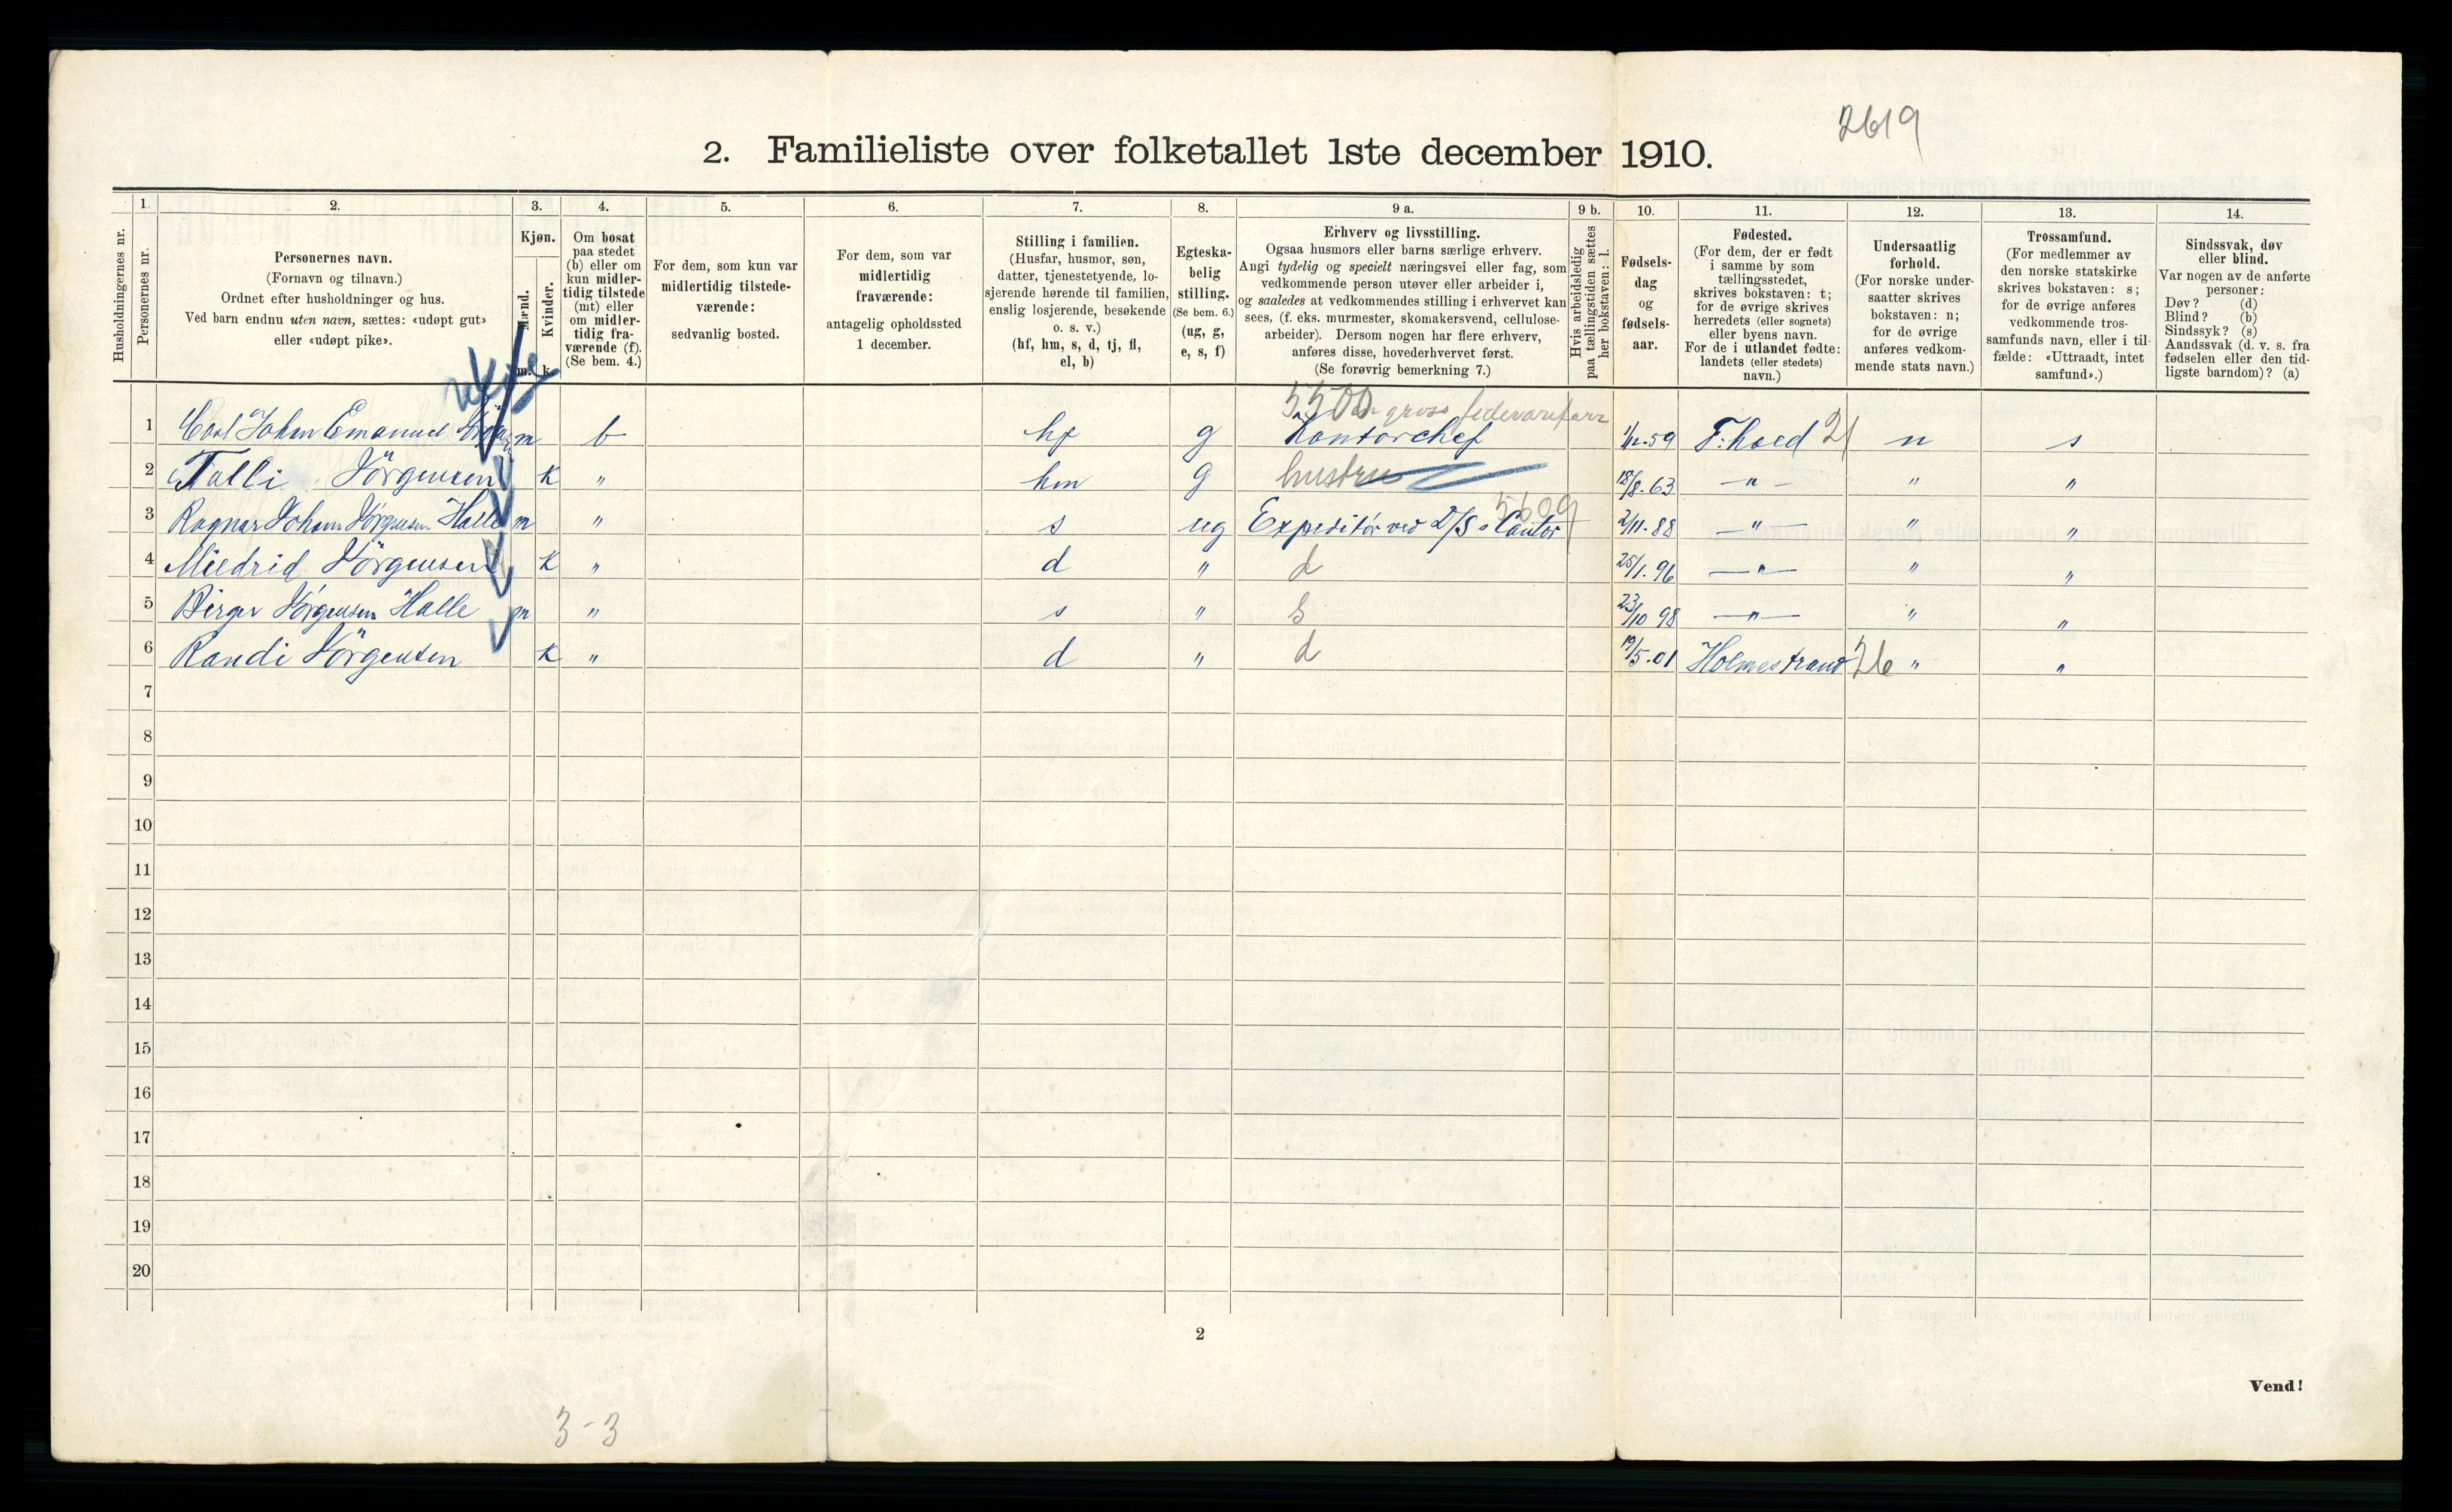 2619
2. Familieliste over folketallet 1ste december 1910.
1. 2. 3. 4. 5. 6. 7. 8. 9 a. 9 b. 10. 11. 12. 13. 14.
Husholdningernes nr.
Personernes nr.
Personernes navn.
(Fornavn og tilnavn.)
Ordnet efter husholdninger og hus.
Ved barn endnu uten navn, sættes: «udøpt gut»
eller «udøpt pike».
Kjøn.
Mænd.
Kvinder.
m. k.
Om bosat
paa stedet
(b) eller om
kun midler-
tidig tilstede
(mt) eller
om midler-
tidig fra-
værende (f).
(Se bem. 4.)
For dem, som kun var
midlertidig tilstede-
værende:
sedvanlig bosted.
For dem, som var
midlertidig
fraværende:
antagelig opholdssted
1 december.
Stilling i familien.
(Husfar, husmor, søn,
datter, tjenestetyende, lo-
sjerende hørende til familien,
enslig losjerende, besøkende
o. s. v.)
(hf, hm, s, d, tj, fl,
el, b)
Egteska-
belig
stilling.
(Se bem. 6.)
(ug, g,
e, s, f)
Erhverv og livsstilling.
Ogsaa husmors eller barns særlige erhverv.
Angi tydelig og specielt næringsvei eller fag, som
vedkommende person utøver eller arbeider i,
og saaledes at vedkommendes stilling i erhvervet kan
sees, (f. eks. murmester, skomakersvend, cellulose-
arbeider). Dersom nogen har flere erhverv,
anføres disse, hovederhvervet først.
(Se forøvrig bemerkning 7.)
Hvis arbeidsledig
paa tællingstiden sættes
her bokstaven: l.
Fødsels-
dag
og
fødsels-
aar.
Fødested.
(For dem, der er født
i samme by som
tællingsstedet,
skrives bokstaven: t;
for de øvrige skrives
herredets (eller sognets)
eller byens navn.
For de i utlandet fødte:
landets (eller stedets)
navn.)
Undersaatlig
forhold.
(For norske under-
saatter skrives
bokstaven: n;
for de øvrige
anføres vedkom-
mende stats navn.)
Trossamfund.
(For medlemmer av
den norske statskirke
skrives bokstaven: s;
for de øvrige anføres
vedkommende tros-
samfunds navn, eller i til-
fælde: «Uttraadt, intet
samfund».)
Sindssvak, døv
eller blind.
Var nogen av de anførte
personer:
Døv? (d)
Blind? (b)
Sindssyk? (s)
Aandssvak (d. v. s. fra
fødselen eller den tid-
ligste barndom)? (a)
5500 en gross
1 Carl Johan Emanuel m b hf g Kontorchef 1/12.59 F.hald 21 n s
2 Talli Jörgensen k " hm g hustru 18/8.63 — " — " "
3 Ragnar Johan Jörgensen Halle m " s ug Expeditör ved D/S "Cantor 5609 2/11.88 — " — " "
4 Mildrid Jörgensen k " d " d 25/1.96 — " — " "
5 Birger Jörgensen Halle m " s " s 23/10 98 — " — " "
6 Randi Jörgensen k " d " d 19/5.01 Holmestrand 26 " "
7
8
9
10
11
12
13
14
15
16
17
18
19
20
2
Vend!
3-3